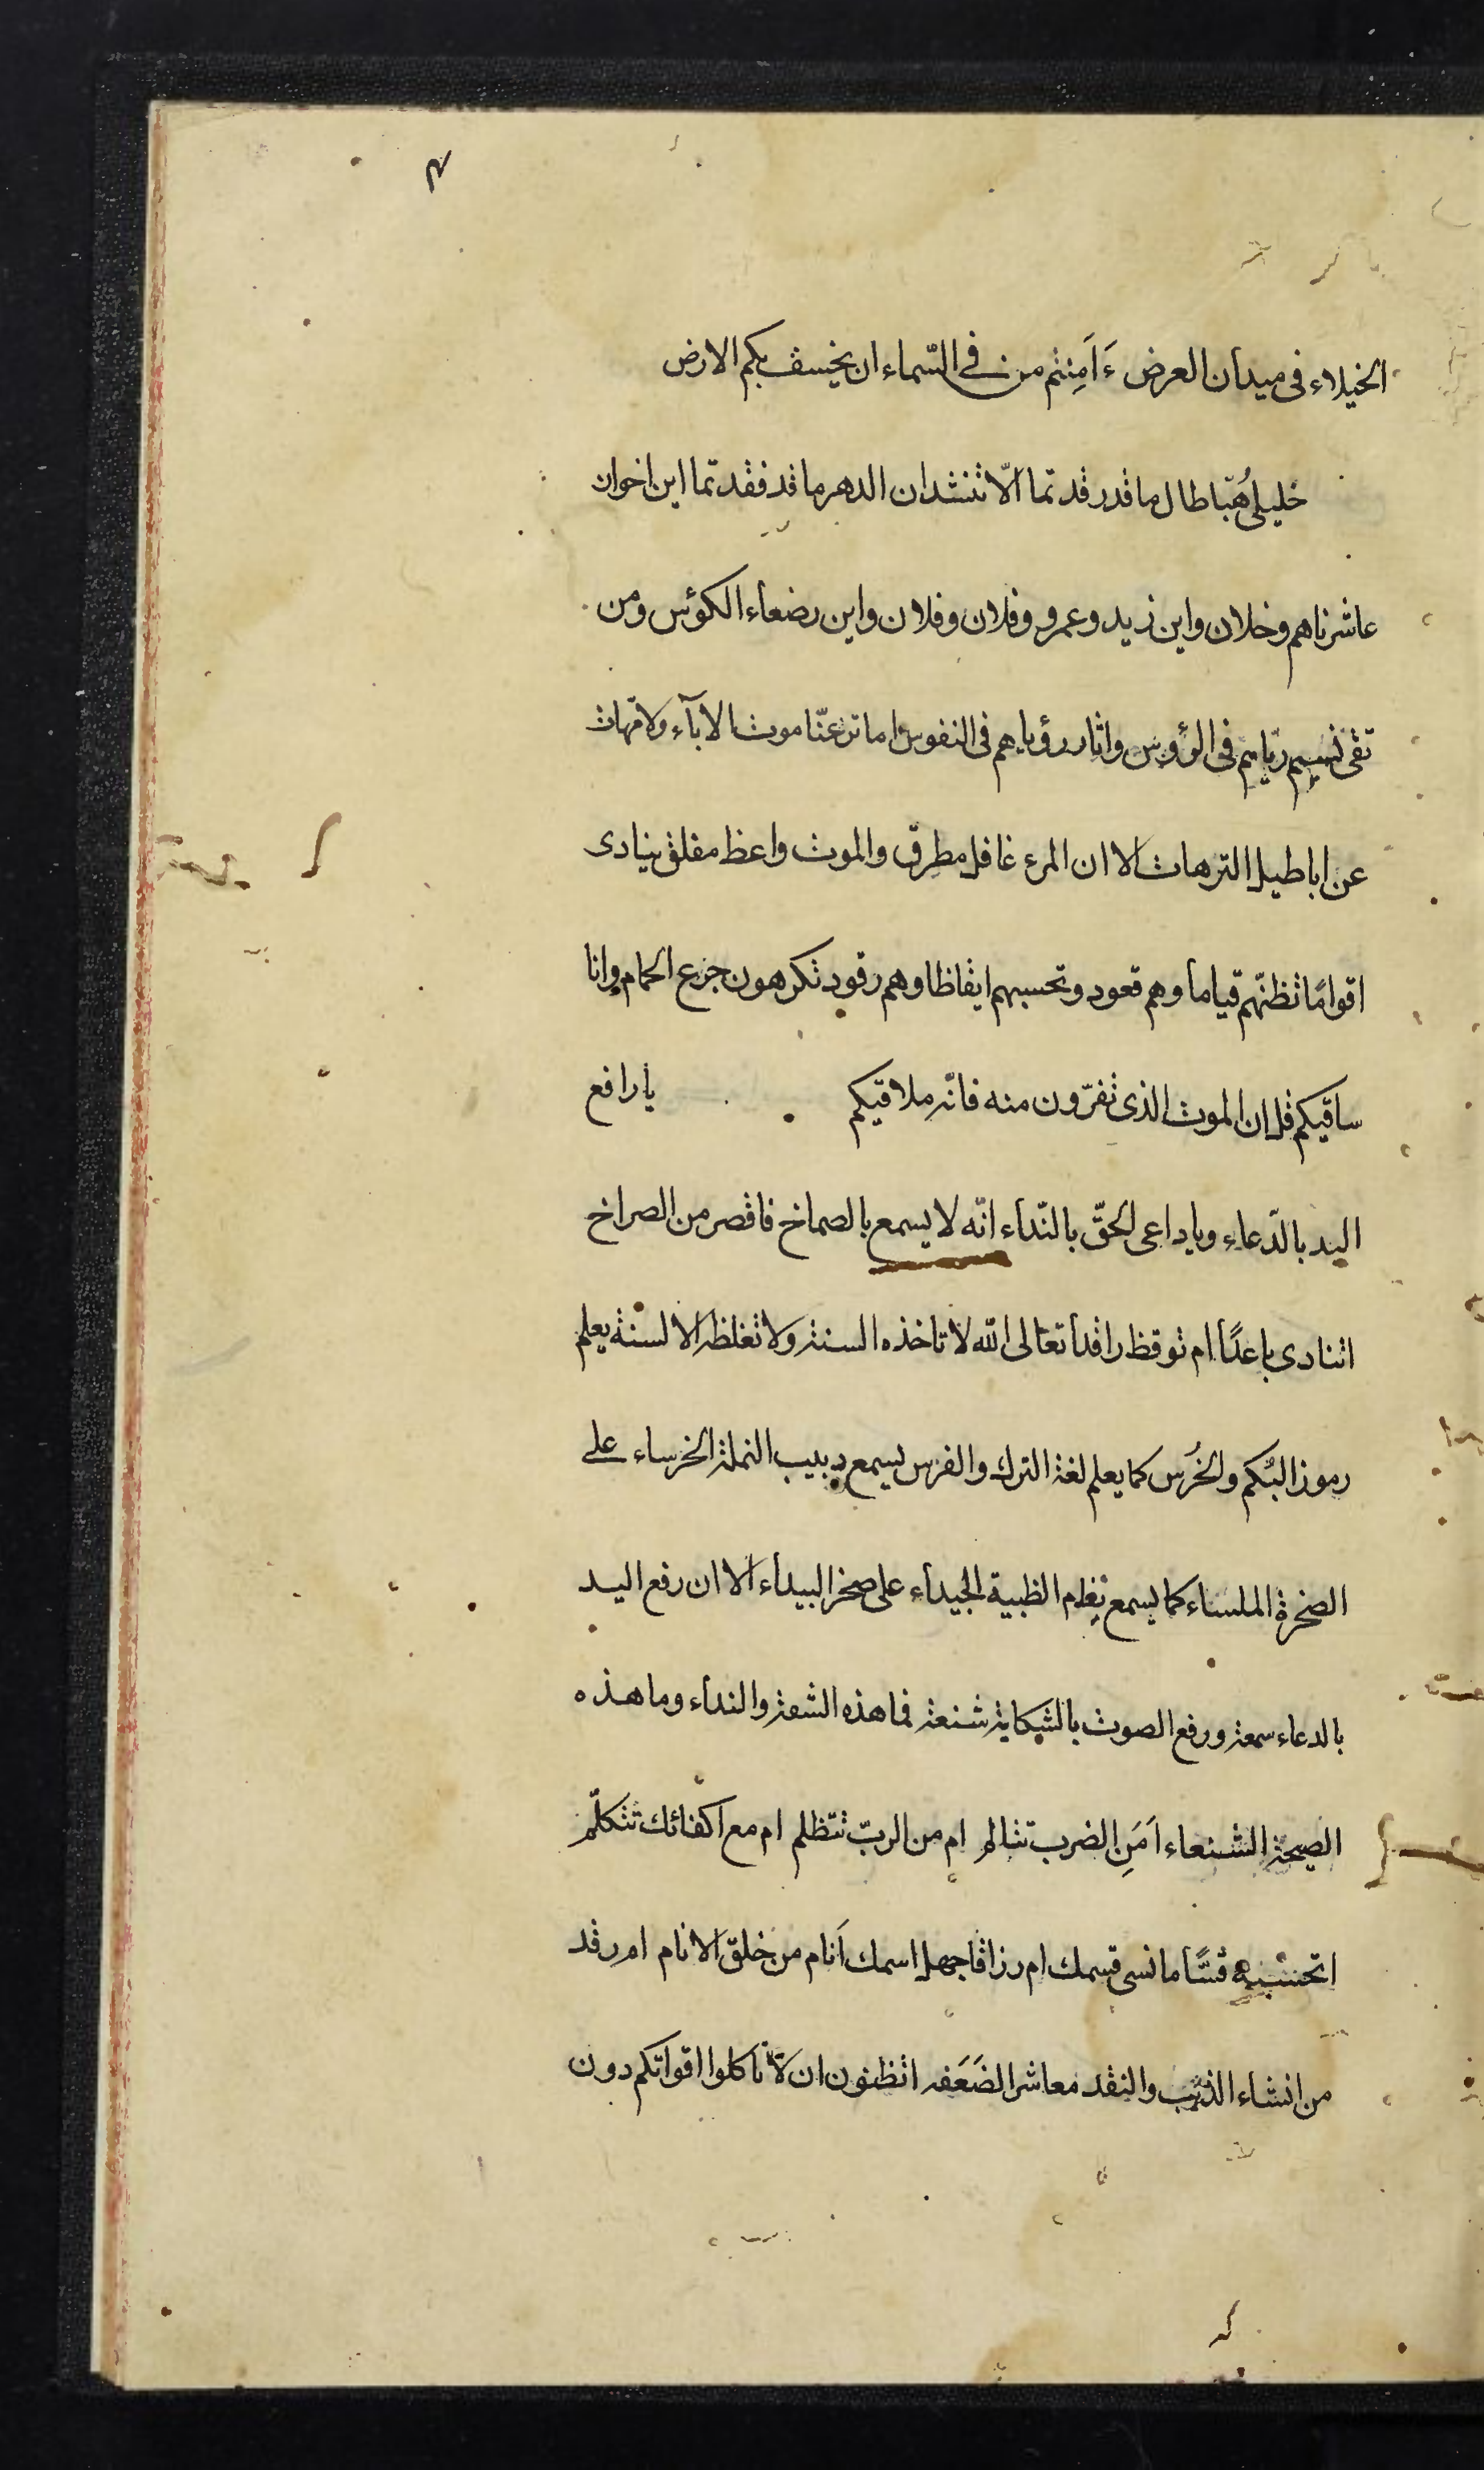 ٣
الخيلاء فى ميدان العرض ءَاَمِنتم من فى السّماء ان يخسف بكم الارض
خليلى هُبّا طال ما قد رقدتما الّا تنشدان الدهر ما قد فقدتما اين اخوان
عاشرناهم وخلان واين زيد وعمرو وفلان وفلان واين رضعاء الكؤس ومن
تقى نسيم ريّاهم فى الرؤوس واثار رؤياهم فى النفوس اما تزعنّا موت الاباء والامّهات
عن اباطيل الترهات الا ان المرء غافل مطرِق والموت واعظ مفلق ينادى
اقوامًا تظنّهم قياما وهم قعود وتحسبهم ايقاظا وهم رقود تكرهون جزع الحمام وانا
ساقيكم قل ان الموت الذى تفرّون منه فانّه ملاقيكم يا رافع
اليد بالدّعاء ويا داعى الحقّ بالنّداء انّه لا يسمع بالصماخ فاقصر من الصراخ
اتنادى باعدًا ام توقظ راقدا تعالى الله لا تاخذه السنة ولا تغلظه الالسنة يعلم
رموز البُكم والخُرس كما يعلم لغة الترك والفرس يسمع دبيب النملة الخرساء على
الصخرة الملساء كما يسمع بغام الظبية الجيداء على صخر البيداء الا ان رفع اليد
بالدعاء سمعة ورفع الصوت بالشكاية شنعة فما هذه الشفة والنداء وما هذه
الصيحة الشنعاء اَمَنِ الضرب تتالم ام من الربّ تتظلم ام مع اكفائك تتكلّم
اتحسبه قسّاما نسى قسمك ام رزاقا جهل اسمك اَنام من خلق الانام ام رقد
من انشاء الذئب والنقد معاشر الضَعَفه اتظنون ان لّا تاكلوا اقواتكم دون